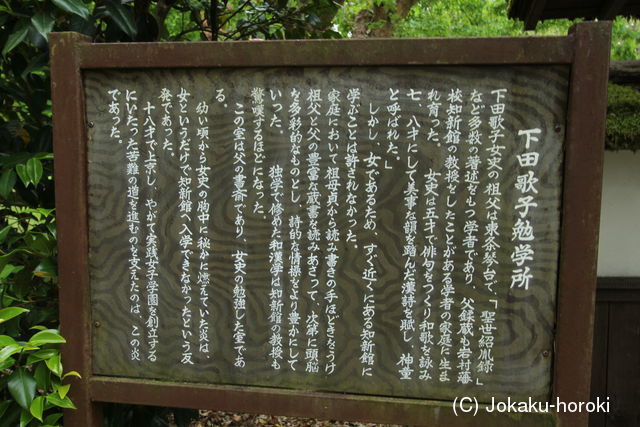 下田歌子勉学所
下田歌子女史の祖父は東条琴台で、「聖世胤録」
など多数の著述をもつ学者であり、父鍒蔵も岩村藩
校知新館の教授をしたことがある学者の家庭に生ま
れ育った。 女史は五才で俳句をつくり和歌を詠み
七、八才にして美事な韻を踏んだ漢詩を賦し、神童
と呼ばれた。
しかし、女であるため、すぐ近くにある知新館に
学ぶことは許されなかった。
家庭において、祖母貞から読み書きの手ほどきをうけ
祖父と父の豊富な蔵書を読みあさって、次第に頭脳
を多彩的なものとし、詩的な情操をより豊かにして
いった。 独学で修めた和漢学は知新館の教授も
驚嘆するほどになった。
この室は父の書斎であり、女史の勉強した室であ
る。
幼い頃から女史の胸中に秘かに燃えていた炎は、
女というだけで知新館へ入学できなかったという反
発であった。
十八才で上京し、やがて実践女子学園を創立する
にいたった苦難の道を進むのを支えたのは、この炎
であった。
(C) Jokaku-horoki